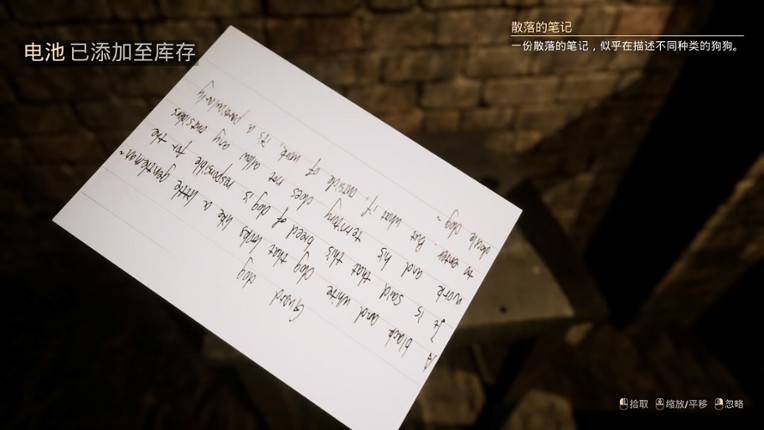 电池 已添加至库存
散落的笔记
一份散落的笔记，似乎在描述不同种类的狗狗。
Guard dog
A black and white dog that looks like a little gentleman~
It is said that this breed of dog is responsible for the
work and his territory does not allow any outsiders
to enter But what if, outside of work, it's a particularly
docile dog~
拾取 缩放/平移 忽略